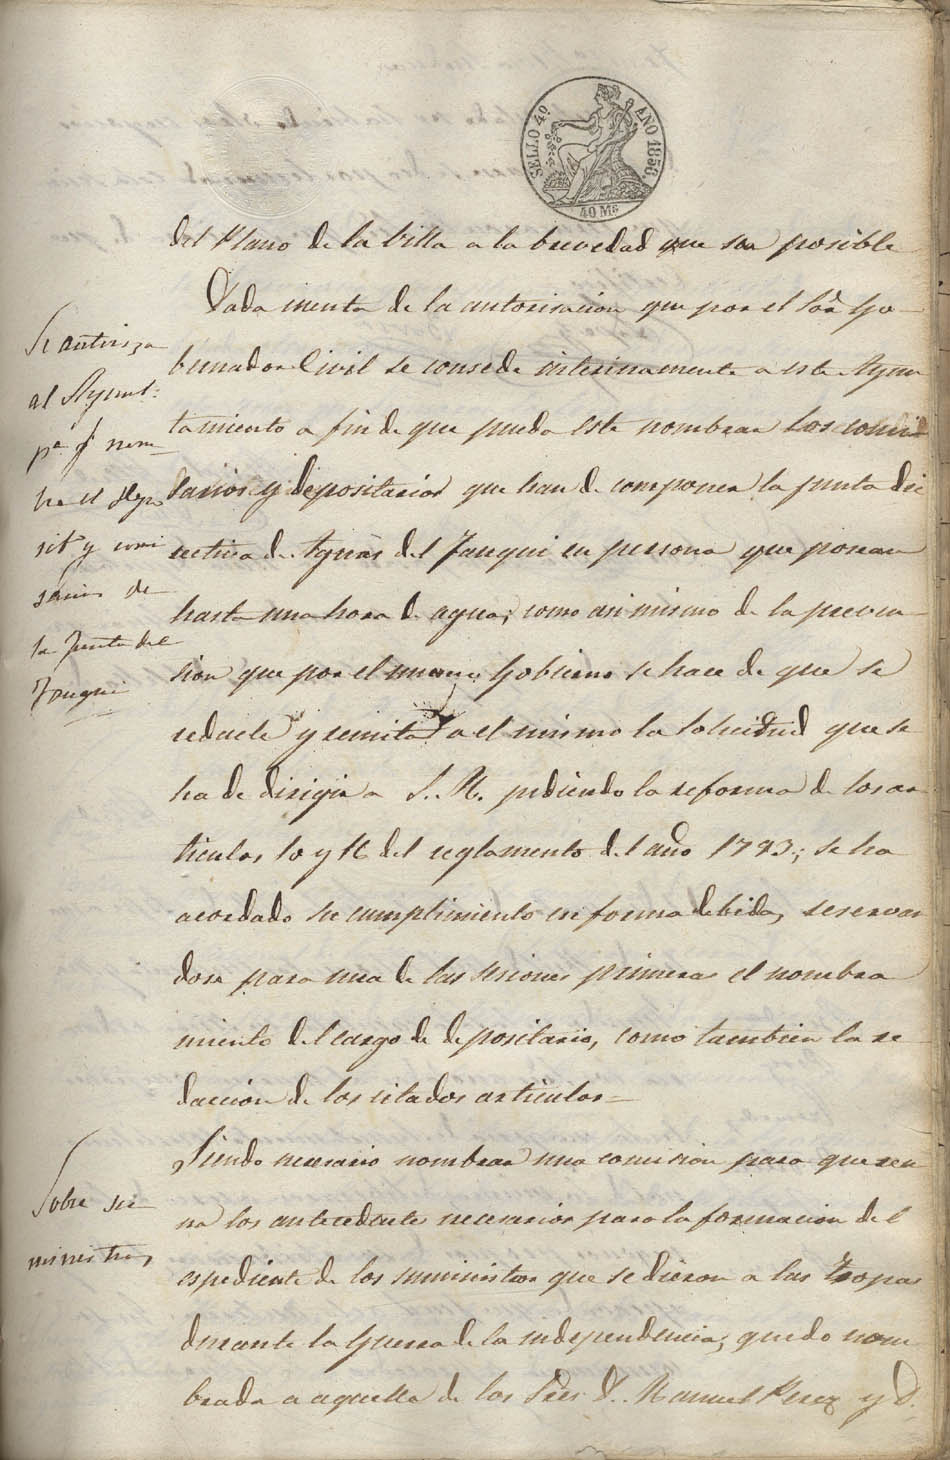 SELLO 4º. AÑO 1850.
40 Ms
del Plano de la billa a la brevedad que sea posible
Dada cuenta de la autorisacion que por el Sor. Go-
bernador Civil se consede interinamente a este Ayun
tamiento a fin de que pueda este nombrar los comi
sarios y depositarios que han de componer la junta di
rectiva de Aguas del Fauqui en persona que posean
hasta una hora de agua; como asimismo de la preven
sion que por el mismo Gobierno se hace de que se
redacte y remita a el mismo la solicitud que se
ha de dirigir a S. M. pidiendo la reforma de los ar
ticulos 10 y 16 del reglamento del año 1793; se ha
acordado su cumplimiento en forma debida, reservan
dose para una de las sesiones primeras el nombra
miento del cargo de depositario, como tambien la re
daccion de los sitados articulos=
Siendo necesario nombrar una comision para que reu
na los antecedentes necesarios para la formacion del
espediente de los suministros que se dieron a las tropas
durante la Guerra de la independencia; quedo nom
brada a aquella de los Sres. D. Manuel Perez y D.
Se autoriza
al Ayunt.
pa. q. nom
bre el depo
sit.º y comi
sarios de
la Junta del
Fauqui
Sobre su
ministros